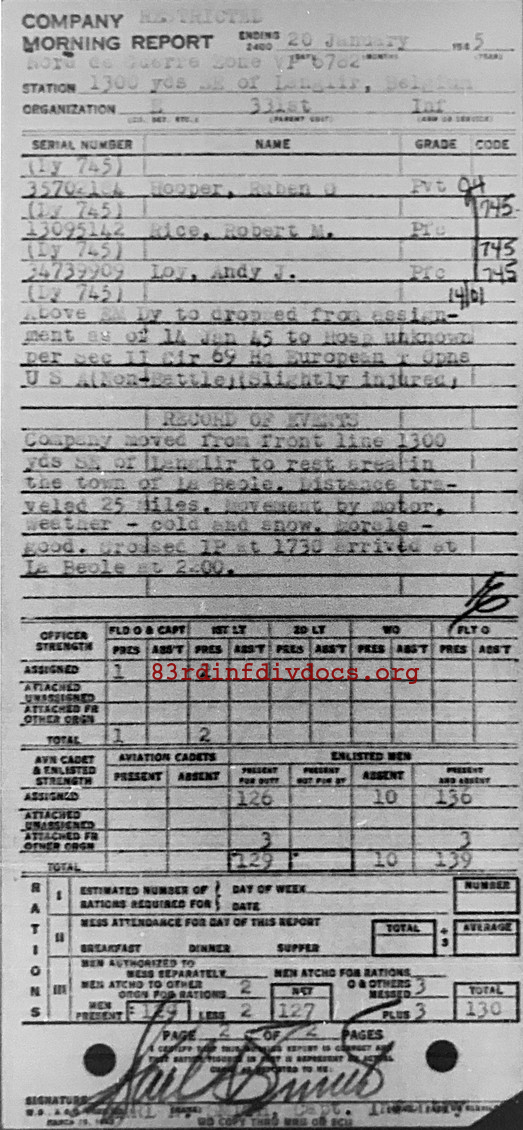 COMPANY RESTRICTED
MORNING REPORT ENDING 2400 20 January 1945
(DATE) (MONTH) (YEAR)
Nord de Guerre Zone VP 6782
STATION 1300 yds SE of Langlir, Belgium
ORGANIZATION E 331st Inf
(CO. DET. ETC.) (PARENT UNIT) (ARM OR SERVICE)
SERIAL NUMBER NAME GRADE CODE
(Dy 745)
Hooper, Ruben O Pvt
(Dy 745) 745
13095142 Rice, Robert M. Pfc
(Dy 745) 745
34739909 Loy, Andy J. Pfc 745
(Dy 745)
Above EM Dy to dropped from assign-
ment as of 14 Jan 45 to Hosp unknown
per Sec II Cir 69 Hq European T Opns
U S A(Non-Battle)(Slightly injured)
RECORD OF EVENTS
Company moved from front line 1300
yds SE of Langlir to rest area in
the town of La Beole. Distance tra-
veled 25 miles. Movement by motor,
weather - cold and snow. Morale -
good. Crossed IP at 1730 arrived at
La Beole at 2200.
OFFICER STRENGTH FLD O & CAPT 1ST LT 2D LT WO FLT O
PRES ABS'T PRES ABS'T PRES ABS'T PRES ABS'T PRES ABS'T
ASSIGNED 1 2
83rdinfdivdocs.org
ATTACHED UNASSIGNED
ATTACHED FR OTHER ORGN
TOTAL 1 2
AVN CADET & ENLISTED STRENGTH AVIATION CADETS ENLISTED MEN
PRESENT ABSENT PRESENT FOR DUTY PRESENT NOT FOR DY ABSENT PRESENT AND ABSENT
ASSIGNED 126 10 136
ATTACHED UNASSIGNED
ATTACHED FR OTHER ORGN 3 3
TOTAL 129 10 139
RATIONS
I ESTIMATED NUMBER OF RATIONS REQUIRED FOR { DAY OF WEEK DATE NUMBER
II MESS ATTENDANCE FOR DAY OF THIS REPORT TOTAL ÷ 3 AVERAGE
BREAKFAST DINNER SUPPER
III MEN AUTHORIZED TO MESS SEPARATELY MEN ATCHD FOR RATIONS
MEN ATCHD TO OTHER ORGN FOR RATIONS 2 NET O & OTHERS MESSED 3 TOTAL
MEN PRESENT 129 LESS 2 127 PLUS 3 130
PAGE 2 OF 2 PAGES
I CERTIFY THAT THIS MORNING REPORT IS CORRECT AND
SIGNATURE
Capt. Infantry